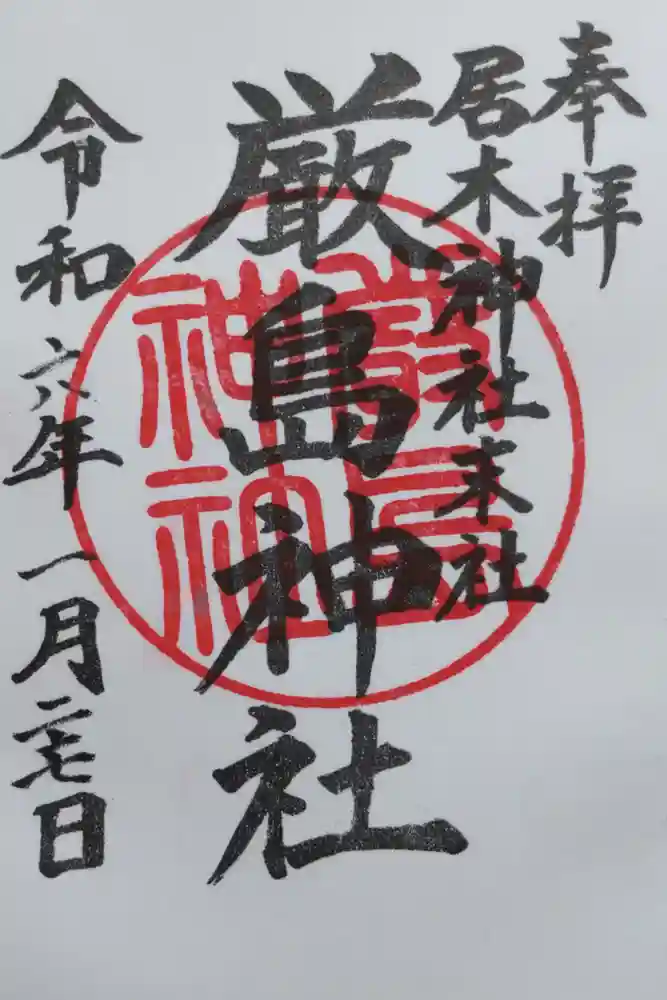 奉拝
居木神社末社
厳島神社
令和六年一月二十七日